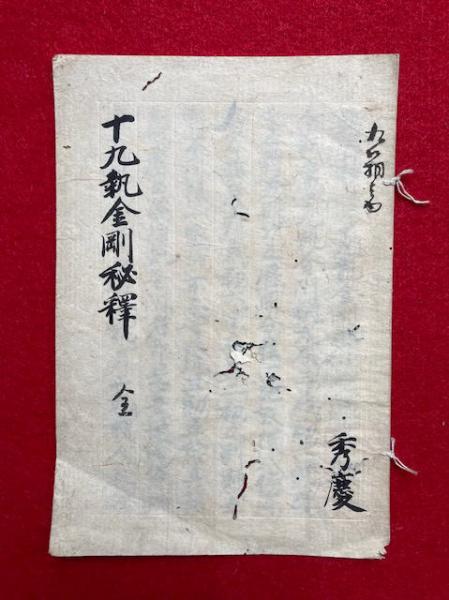 秀慶
十九執金剛秘釋 全